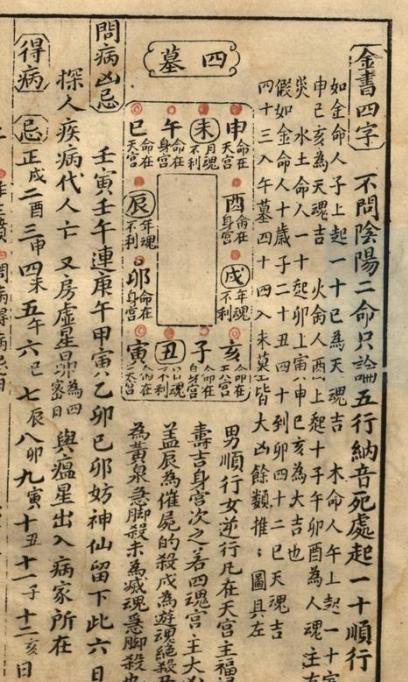 金書四字 不問陰陽二命只論五行納音死處起一十順行
如金命人子上起一十巳為天魂吉 木命人午上起一十寅
申巳亥為天魂吉 火命人酉上起十子午卯酉為人魂注左
炎水土命人一十起卯上寅申巳亥為大吉也
假如金命人十歲子二十丑四十到卯四十二巳天魂吉
四十三入午墓四十四入未墓皆大凶餘類推〻圖具左
四墓
申 命在天宮
未 月魂不利
午 命在
巳 命在天宮
酉 命在身宮
辰 年魂不利
戌 年魂不利
卯 命在身宮
亥 命在
子 命在身宮
丑 魂不利
寅 命在天宮
男順行女逆行凡在天宮主福
壽吉身宮次之若四魂宮主大
盖辰為催屍的殺戌為遊魂絕殺
為黃泉急脚殺未為滅魂急脚殺
問病凶忌 壬寅壬午連庚午甲寅乙卯巳卯妨神仙留下此六日
探人疾病代人亡 又房虛星昴為四密日 與瘟星出入病家所在
得病忌 正戌二酉三申四未五午六巳七辰八卯九寅十丑十一子十二亥日